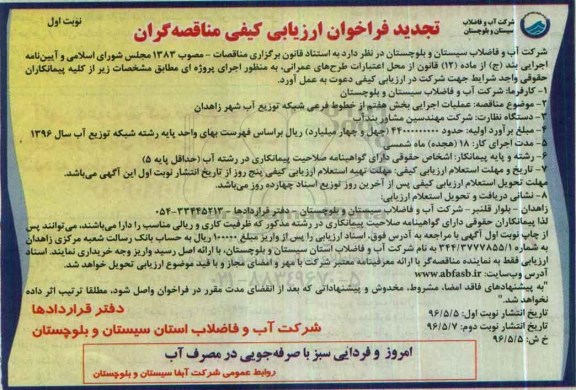 شرکت آب و فاضلاب
سیستان و بلوچستان
نوبت اول
تجدید فراخوان ارزیابی کیفی مناقصه‌گران
شرکت آب و فاضلاب سیستان و بلوچستان در نظر دارد به استناد قانون برگزاری مناقصات - مصوب ۱۳۸۳ مجلس شورای اسلامی و آیین‌نامه
اجرایی بند (ج) از ماده (۱۲) قانون از محل اعتبارات طرح‌های عمرانی، به منظور اجرای پروژه ای مطابق مشخصات زیر از کلیه پیمانکاران
حقوقی واجد شرایط جهت شرکت در ارزیابی کیفی دعوت به عمل آورد.
۱- کارفرما: شرکت آب و فاضلاب سیستان و بلوچستان
۲- موضوع مناقصه: عملیات اجرایی بخش هفتم از خطوط فرعی شبکه توزیع آب شهر زاهدان
۳- دستگاه نظارت: شرکت مهندسین مشاور بندآب
۴- مبلغ برآورد اولیه: حدود ۴۴۰۰۰۰۰۰۰۰۰ (چهل و چهار میلیارد) ریال براساس فهرست بهای واحد پایه رشته شبکه توزیع آب سال ۱۳۹۶
۵- مدت اجرای کار: ۱۸ (هجده) ماه شمسی
۶- رشته و پایه پیمانکار: اشخاص حقوقی دارای گواهینامه صلاحیت پیمانکاری در رشته آب (حداقل پایه ۵)
۷- تاریخ و مهلت استعلام ارزیابی کیفی: مهلت تهیه استعلام ارزیابی کیفی پنج روز از تاریخ انتشار نوبت اول این آگهی می‌باشد.
مهلت تحویل استعلام ارزیابی کیفی پس از آخرین روز توزیع اسناد چهارده روز می‌باشد.
۸- نشانی دریافت و تحویل استعلام ارزیابی:
زاهدان - بلوار قلنبر - شرکت آب و فاضلاب سیستان و بلوچستان - دفتر قراردادها - ۳۳۴۴۵۲۱۲-۰۵۴
لذا پیمانکاران حقوقی دارای گواهینامه صلاحیت پیمانکاری در رشته مذکور که ظرفیت کاری و ریالی مناسب را دارا می‌باشند، می‌توانند پس
از چاپ نوبت اول آگهی با مراجعه به آدرس فوق، اسناد ارزیابی را پس از واریز مبلغ ۱۰۰۰۰۰ ریال به حساب بانک رسالت شعبه مرکزی زاهدان
به شماره ۳۴۴/۳۷۷۷۸۵۵/۱ به نام شرکت آب و فاضلاب استان سیستان و بلوچستان، با ارائه اصل رسید واریز وجه خریداری نمایند. اسناد
ارزیابی فقط به نماینده مناقصه‌گر با ارائه معرفینامه معتبر شرکت با مهر و امضای مجاز و با قید موضوع ارزیابی تحویل خواهد شد.
آدرس وب‌سایت: www.abfasb.ir
"به پیشنهادهای فاقد امضا، مشروط، مخدوش و پیشنهاداتی که بعد از انقضای مدت مقرر در فراخوان واصل شود، مطلقا ترتیب اثر داده
نخواهد شد."
تاریخ انتشار نوبت اول: ۹۶/۵/۵
تاریخ انتشار نوبت دوم: ۹۶/۵/۷
خ ش: ۹۶/۵/۵
دفتر قراردادها
شرکت آب و فاضلاب استان سیستان و بلوچستان
امروز و فردایی سبز با صرفه‌جویی در مصرف آب
روابط عمومی شرکت آبفا سیستان و بلوچستان